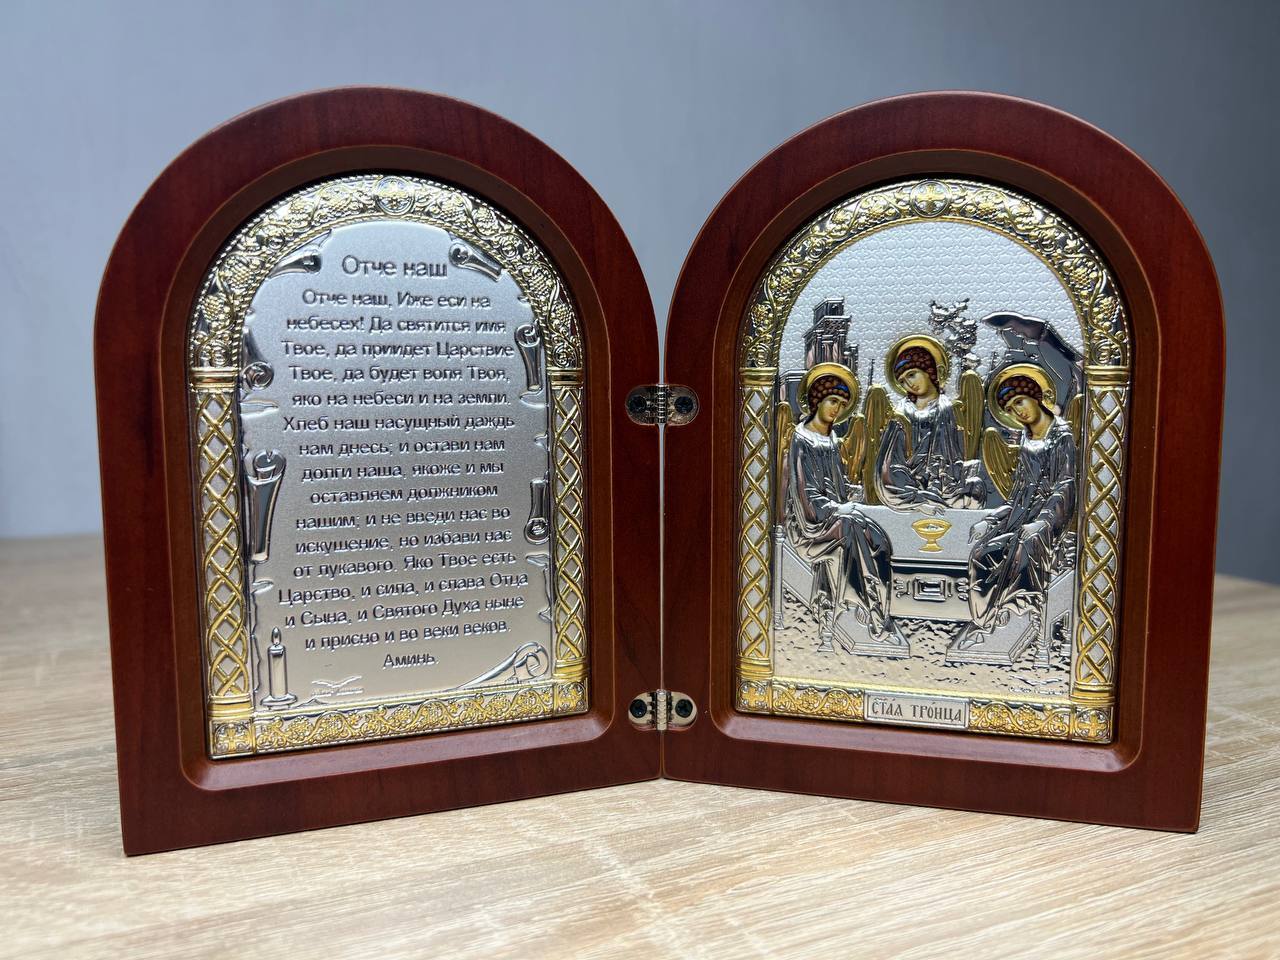 Отче наш
Отче наш, Иже еси на
небесех! Да святится имя
Твое, да приидет Царствие
Твое, да будет воля Твоя,
яко на небеси и на земли.
Хлеб наш насущный даждь
нам днесь; и остави нам
долги наша, якоже и мы
оставляем должником
нашим; и не введи нас во
искушение, но избави нас
от лукавого. Яко Твое есть
Царство, и сила, и слава Отца
и Сына, и Святого Духа ныне
и присно и во веки веков.
Аминь.
СТАЯ ТРО́ИЦА